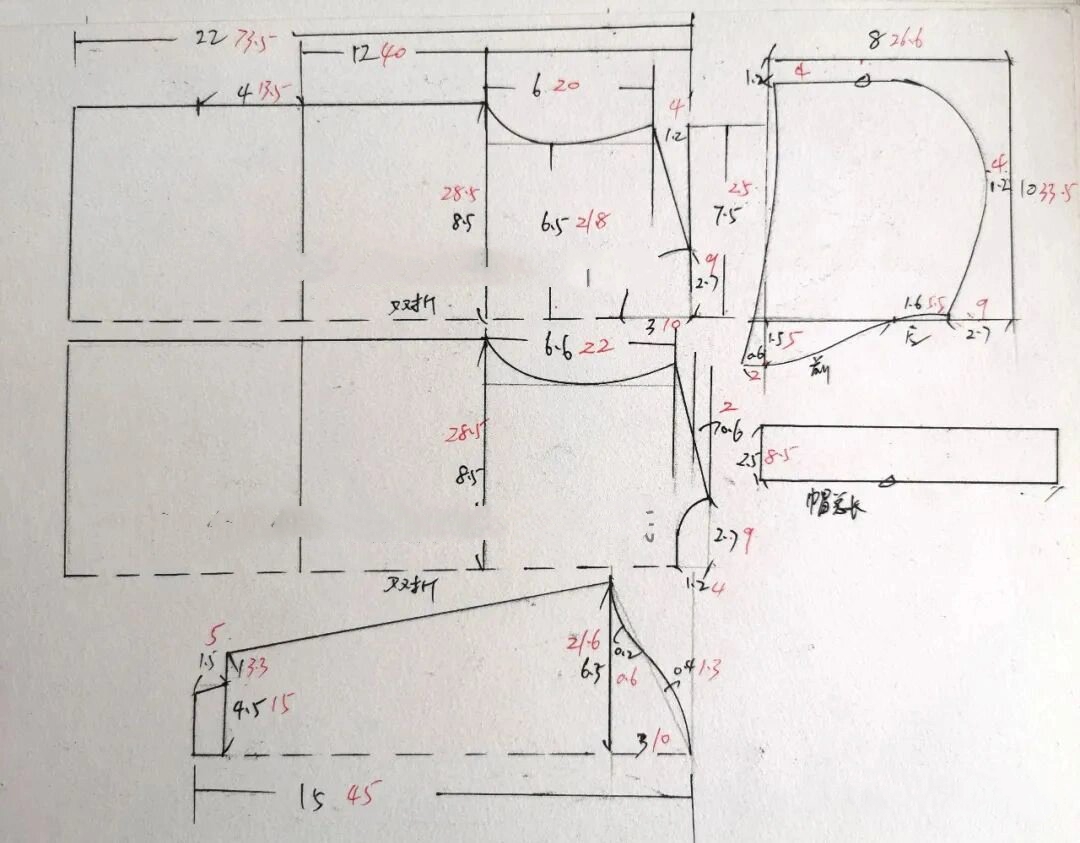 22 73.5
12 40
8 26.6
4 13.5
6 20
4
1.2
1.2 4
28.5
8.5
6.5 21.8
25
7.5
4
1.2
10 33.5
9
2.7
双折
3 10
1.6 5.5
9
2.7
1.5 5
0.6
2
前
后
6.6 22
28.5
8.5
2
0.6
2.5 8.5
帽总长
2.7 9
双折
1.2 4
5
1.5
3.3
4.5 15
21.6
6.5
0.2
0.6
0.4 1.3
3 10
15 45